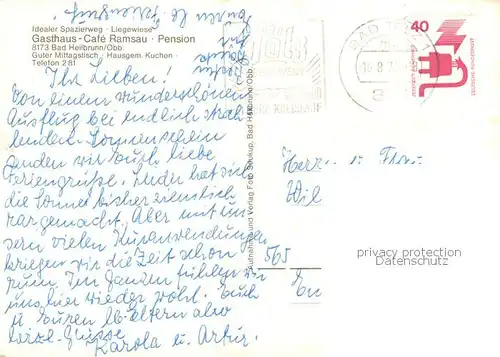 Idealer Spazierweg · Liegewiese
Gasthaus-Café Ramsau · Pension
8173 Bad Heilbrunn/Obb.
Guter Mittagstisch · Hausgem. Kuchen
Telefon 2 81
Ihr Lieben!
Von einem wunderschönen
Ausflug bei endlich strah
lendem Sonnenschein
senden wir Euch liebe
Feriengrüße. Leider hat sich
die Sonne bisher ziemlich
rar gemacht. Aber mit un
sern vielen Kuranwendungen
kriegen wir die Zeit schon
rum. Im Ganzen fühlen wir
uns hier wieder wohl. Euch
u. Euren lb. Eltern also
Grüsse
Karola u. Artur.
Aufnahme und Verlag Foto Bad Heilbrunn/Obb.
BAD TÖLZ
40
DEUTSCHE BUNDESPOST
Herrn u. Frau
Wil
565
privacy protection
Datenschutz